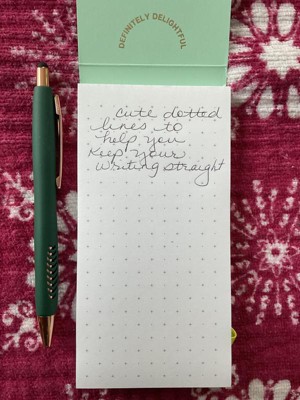 DEFINITELY DELIGHTFUL
cute dotted
lines to
help you
Keep your
writing straight